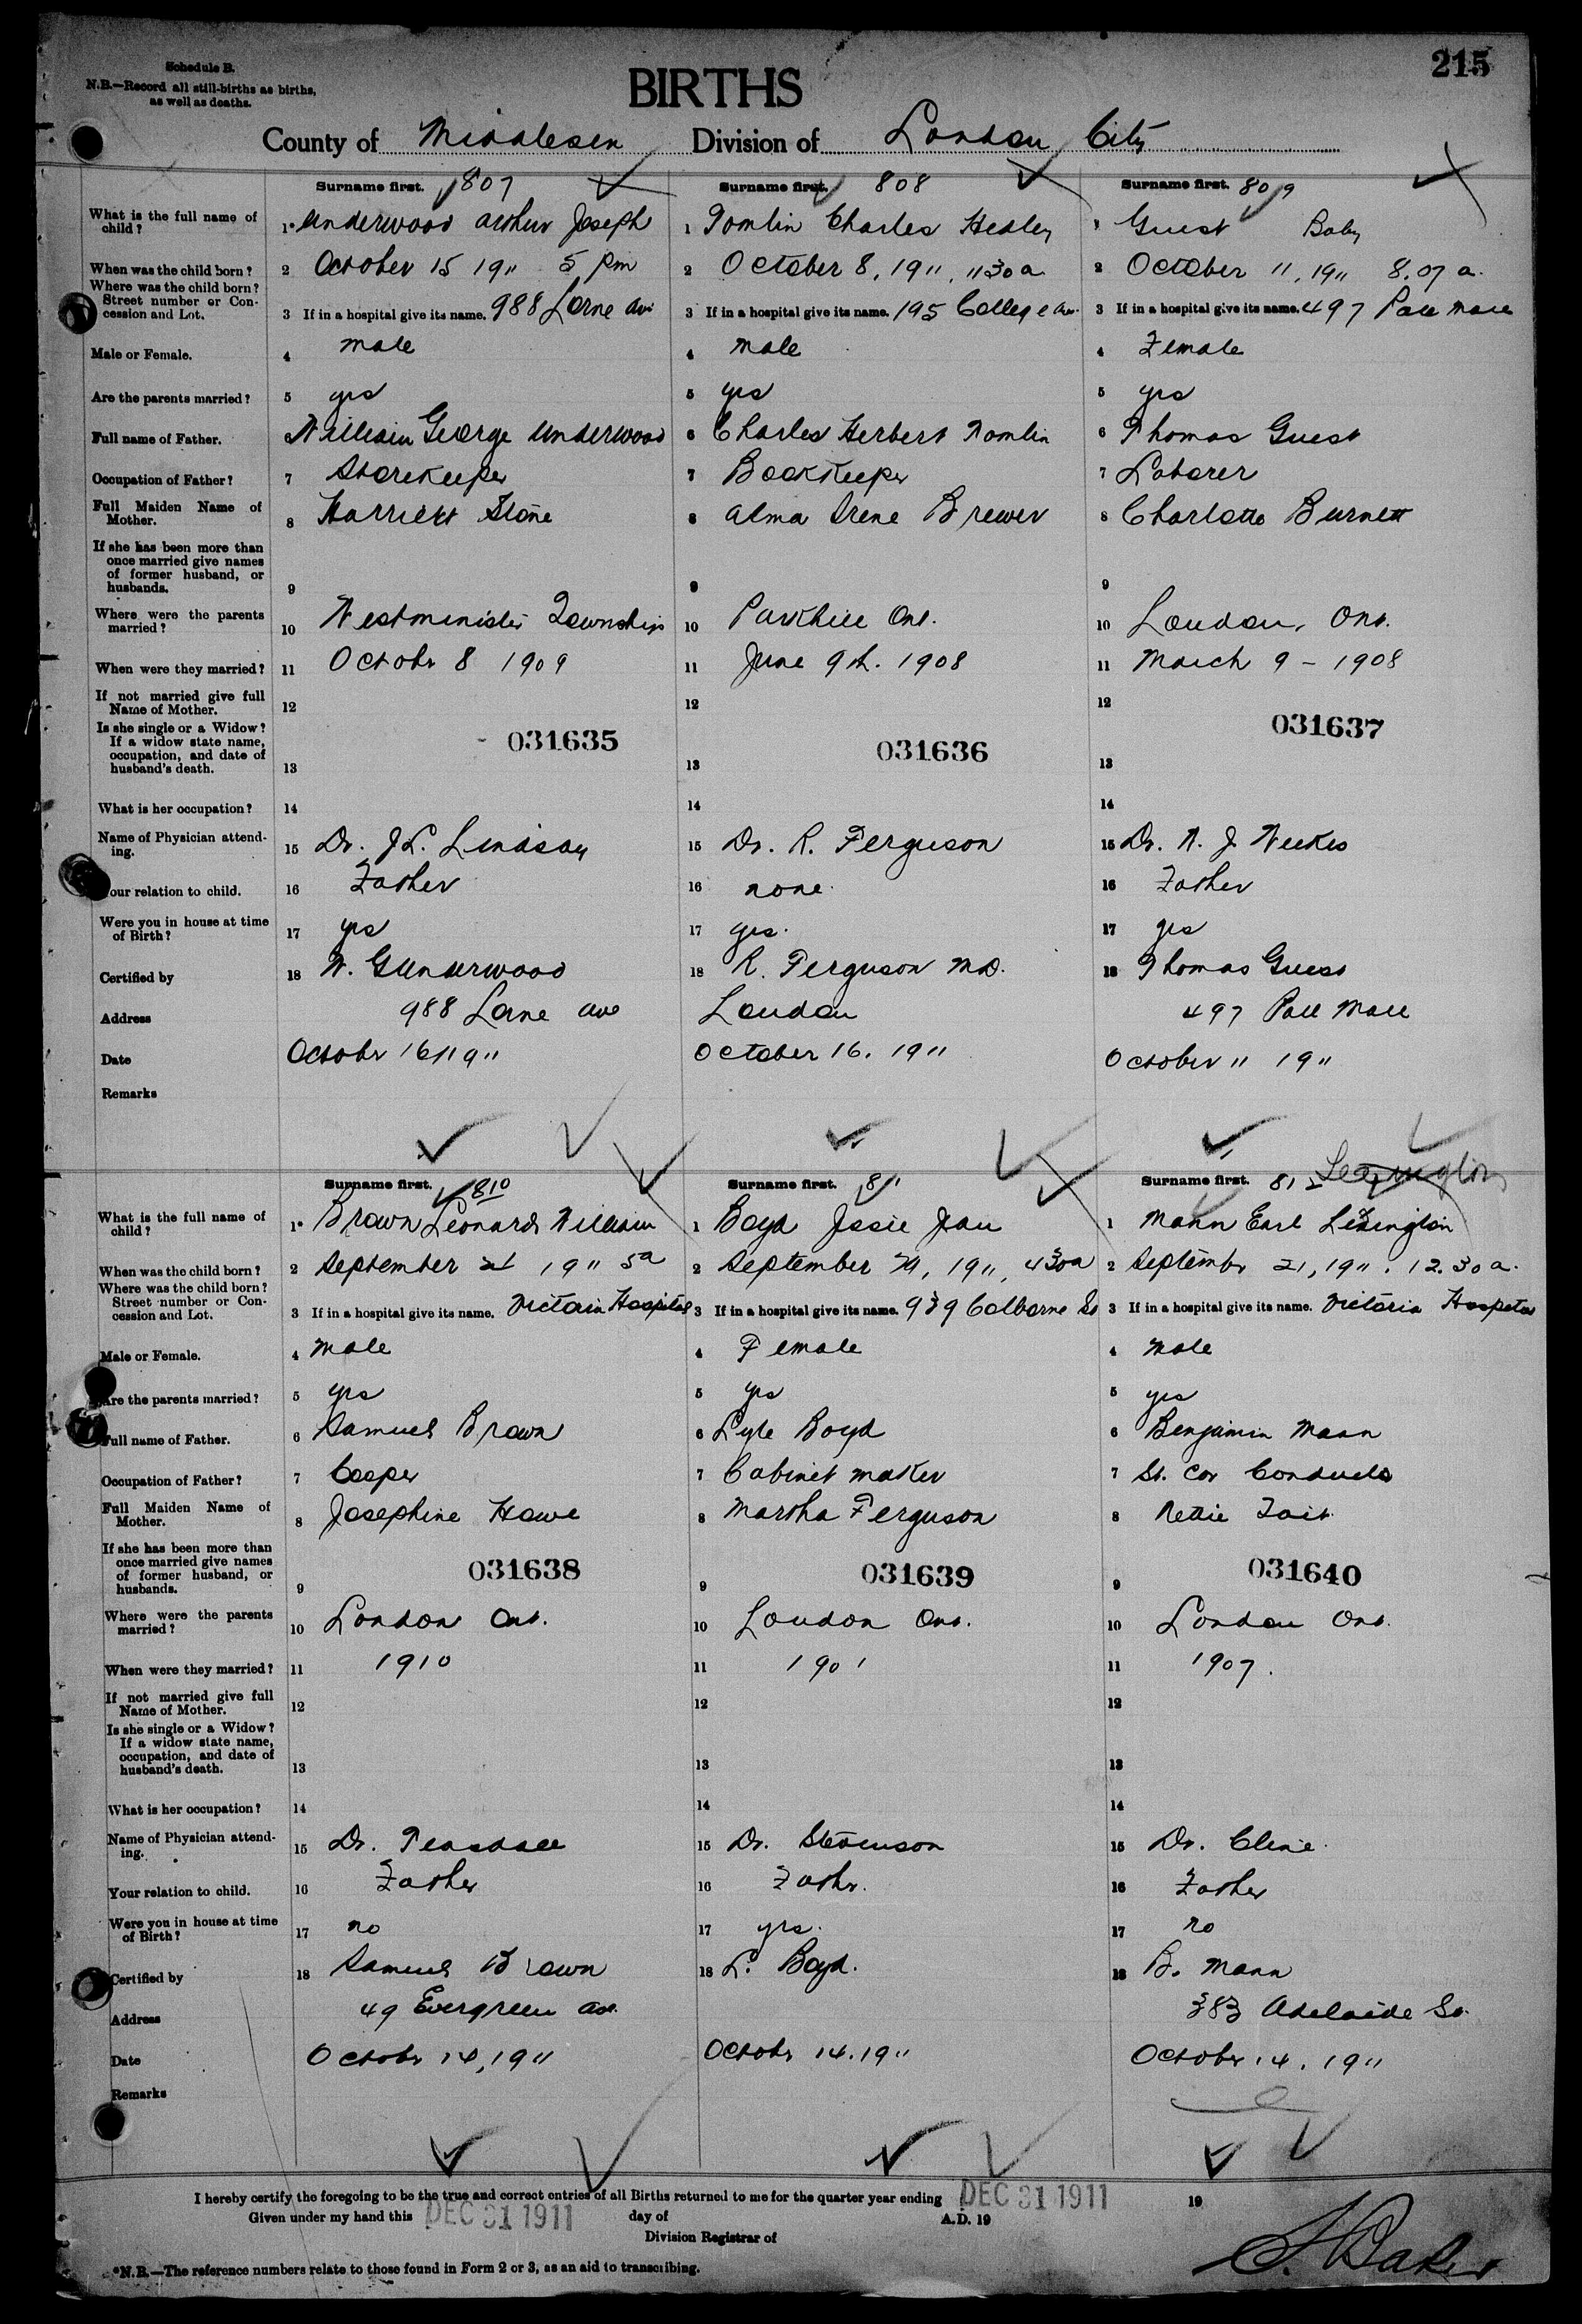 215
Schedule B.
N.B.—Record all still-births as births,
as well as deaths.
BIRTHS
County of Middlesex Division of London City
Surname first. 807 Surname first. 808 Surname first. 809
What is the full name of child? 1 Underwood Arthur Joseph 1 Tomlin Charles Hedley 1 Guest Baby
When was the child born? 2 October 15 1911 5 pm 2 October 8, 1911, 1130 a 2 October 11, 1911 8.07 a.
Where was the child born? Street number or Concession and Lot. 3 If in a hospital give its name. 988 Lorne Av 3 If in a hospital give its name. 195 College Av. 3 If in a hospital give its name. 497 Pall Mall
Male or Female. 4 male 4 male 4 Female
Are the parents married? 5 yes 5 yes 5 yes
Full name of Father. 6 William George Underwood 6 Charles Herbert Tomlin 6 Thomas Guest
Occupation of Father? 7 Storekeeper 7 Bookkeeper 7 Laborer
Full Maiden Name of Mother. 8 Harriett Stone 8 Alma Irene Brewer 8 Charlotte Burnett
If she has been more than once married give names of former husband, or husbands. 9 9 9
Where were the parents married? 10 Westminister Township 10 Parkhill Ont. 10 London, Ont.
When were they married? 11 Octobr 8 1909 11 June 9th. 1908 11 March 9 - 1908
If not married give full Name of Mother. 12 12 12
Is she single or a Widow? If a widow state name, occupation, and date of husband's death. 13 031635 13 031636 13 031637
What is her occupation? 14 14 14
Name of Physician attending. 15 Dr. J.L. Lindsay 15 Dr. R. Ferguson 15 Dr. W. J. Weekes
Your relation to child. 16 Father 16 none 16 Father
Were you in house at time of Birth? 17 yes 17 yes. 17 yes
Certified by 18 W. G Underwood 18 R. Ferguson M.D. 18 Thomas Guest
Address 988 Lorne ave London 497 Pall Mall
Date Octobr 16 1911 October 16. 1911 October 11 1911
Remarks
Surname first. 810 Surname first. 811 Surname first. 812 Lexington
What is the full name of child? 1 Brown Leonard William 1 Boyd Jssie Jean 1 Mann Earl Lexington
When was the child born? 2 September 21 1911 5 a 2 September 1911, 430 a 2 Septembr 21, 1911. 12.30 a.
Where was the child born? Street number or Concession and Lot. 3 If in a hospital give its name. Victoria Hospital 3 If in a hospital give its name. 939 Colborne St 3 If in a hospital give its name. Victoria Hospital
Male or Female. 4 male 4 Female 4 male
Are the parents married? 5 yes 5 yes 5 yes
Full name of Father. 6 Samuel Brown 6 Lyle Boyd 6 Benjamin Mann
Occupation of Father? 7 Cooper 7 Cabinet maker 7 St. Car Conductor
Full Maiden Name of Mother. 8 Josephine Howe 8 Martha Ferguson 8 Nettie Tait
If she has been more than once married give names of former husband, or husbands. 9 031638 9 031639 9 031640
Where were the parents married? 10 London Ont. 10 London Ont. 10 London Ont.
When were they married? 11 1910 11 1901 11 1907.
If not married give full Name of Mother. 12 12 12
Is she single or a Widow? If a widow state name, occupation, and date of husband's death. 13 13 13
What is her occupation? 14 14 14
Name of Physician attending. 15 Dr. Teasdall 15 Dr. Stevenson 15 Dr. Cline
Your relation to child. 16 Father 16 Fathr. 16 Father
Were you in house at time of Birth? 17 no 17 yes. 17 no
Certified by 18 Samuel Brown 18 L. Boyd. 18 B. Mann
Address 49 Evergreen av. 383 Adelaide St.
Date Octobr 14, 1911 Octobr 14. 1911 October 14. 1911
Remarks
I hereby certify the foregoing to be the true and correct entries of all Births returned to me for the quarter year ending DEC 31 1911 19
Given under my hand this DEC 31 1911 day of A.D. 19
Division Registrar of
S. Baker
*N.B.—The reference numbers relate to those found in Form 2 or 3, as an aid to transcribing.